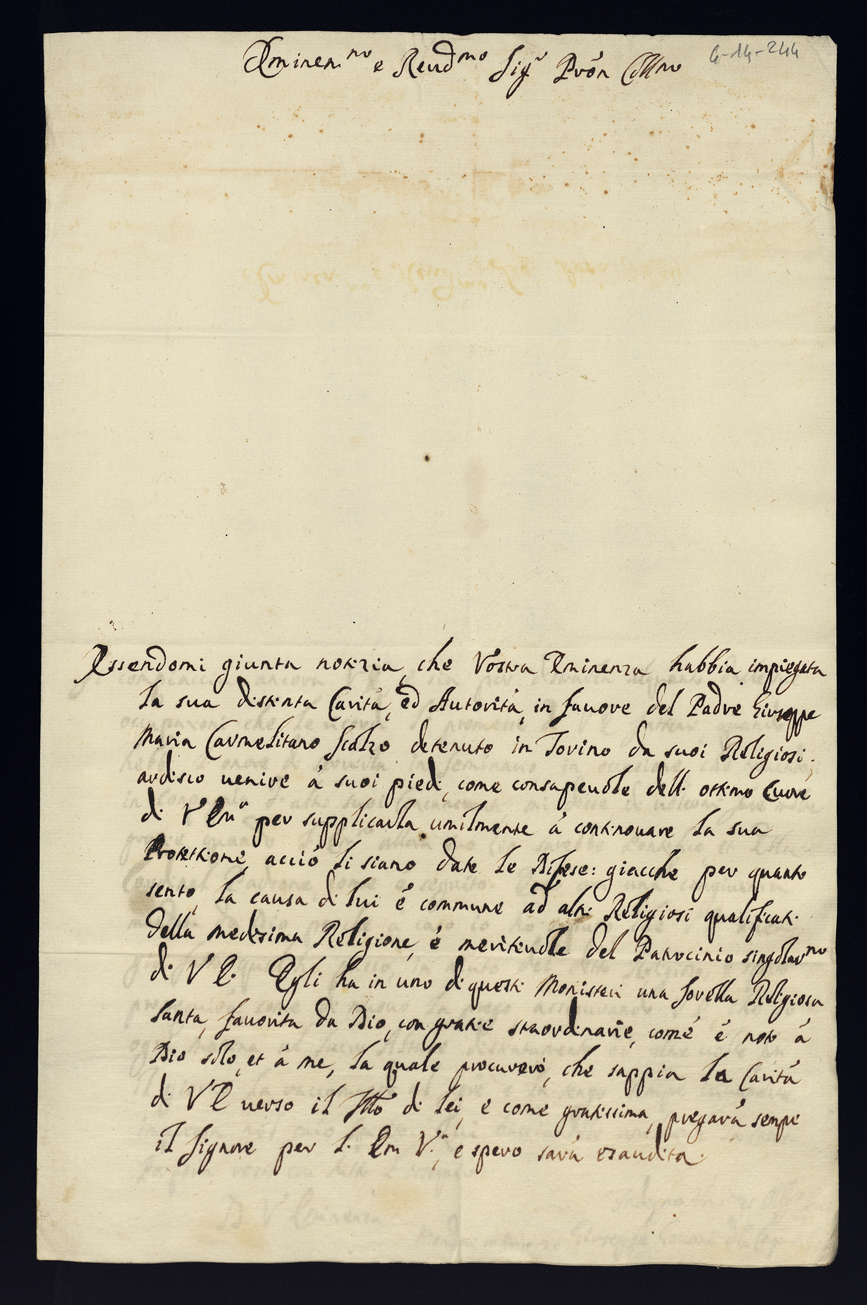 Eminen.mo e Reud.mo Sig.r Prôn Col.mo 6-14-244
Essendomi giunta notizia, che Vostra Eminenza habbia impiegata
la sua distinta Carità, ed Autorità, in fauore del Padre Giuseppe
Maria Carmelitano Scalzo detenuto in Torino da suoi Religiosi:
ardisco uenire à suoi piedi, come consapeuole dell' ottimo Cuore
di V' Em.a per supplicarla umilmente à continouare la sua
Protettione, acciò li siano date le Difese: giacche per quanto
sento, la causa di lui è commune ad altri Religiosi qualificati
della medesima Religione, è meriteuole del Patrocinio singolar.mo
di V E. Egli ha in uno di questi Monisteri una Sorella Religiosa
santa, fauorita da Dio, con gratie straordinarie, come è noto à
Dio solo, et à me, la quale procurerò, che sappia la Carità
di V' E uerso il di lei, e come gratissima, pregarà sempre
il Signore per l' Em V.a, e spero sarà esaudita.